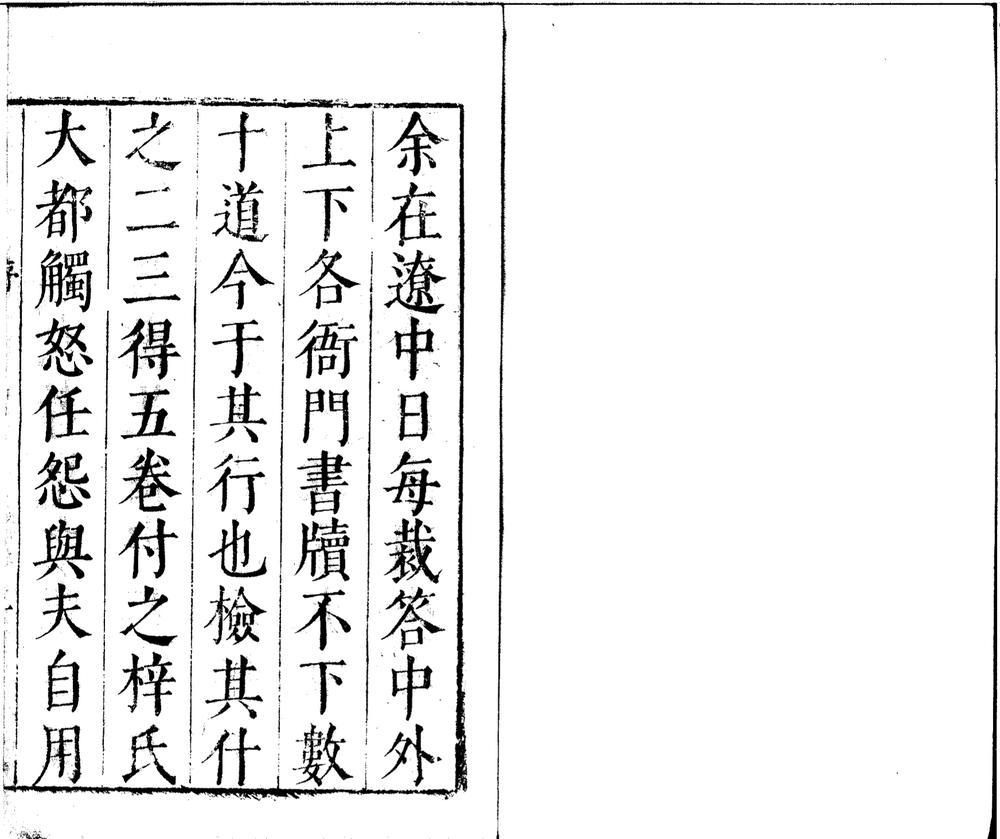 余在遼中日每裁答中外
上下各衙門書牘不下數
十道今于其行也檢其什
之二三得五卷付之梓氏
大都觸怒任怨與夫自用